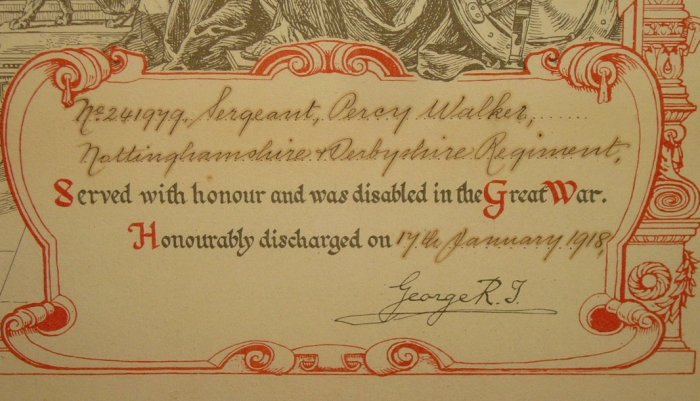 No. 241979. Sergeant, Percy Walker,
Nottinghamshire & Derbyshire Regiment,
Served with honour and was disabled in the Great War.
Honourably discharged on 17th January 1918,
George R.I.